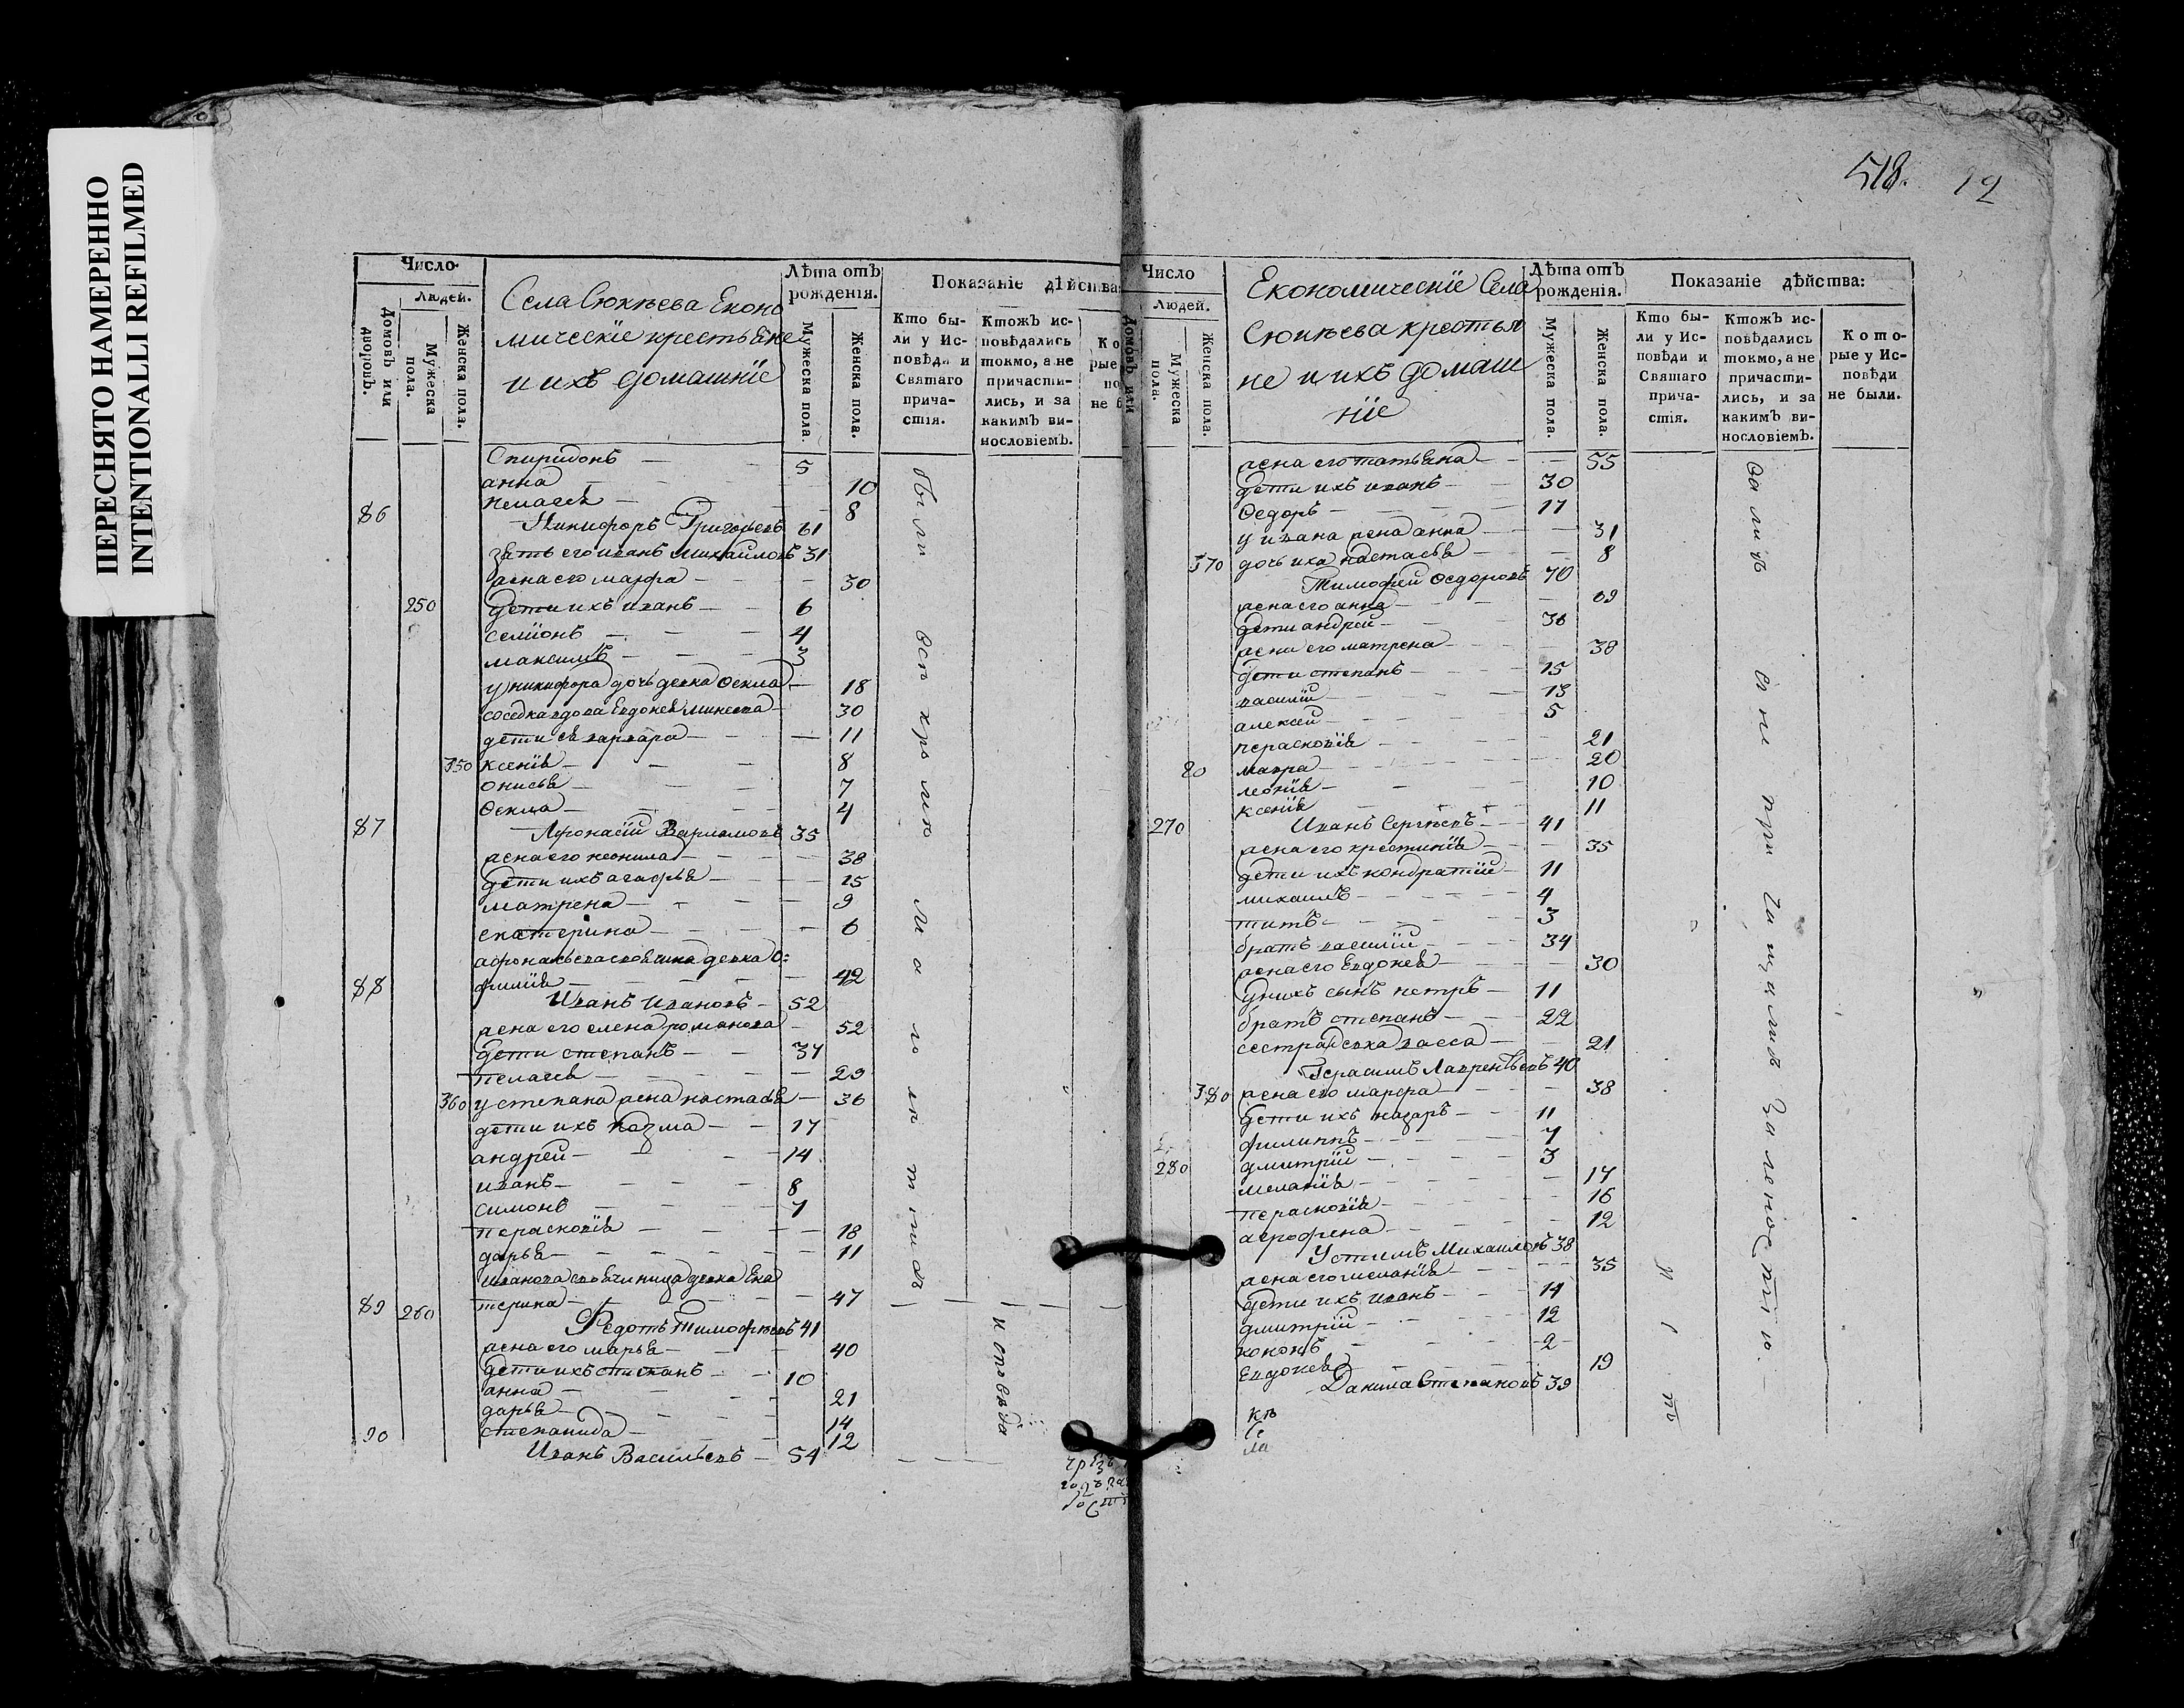 ПЕРЕСНЯТО НАМЕРЕННО
INTENTIONALLI REFILMED
Число
Людей.
Домовъ или дворовъ.
Мужеска пола.
Женска пола.
Села Сюкѣева Еконо
мическіе крестьяне
и ихъ домашніе
Лѣта отъ рожденія.
Мужеска пола.
Женска пола.
Показаніе дѣйства:
Кто были у Исповѣди и Святаго причастія.
Ктожъ исповѣдались токмо, а не причастились, и за какимъ винословіемъ.
Спиридонъ — 5
анна 10
пелагея — 8
86 Никифоръ Григорьевъ 61
зять его иванъ михайловъ 31
жена его марфа — 30
250 дети ихъ иванъ — 6
семионъ — 4
максимъ — 3
у никифора дочь девка Ѳекла — 18
соседка вдова Евдокея 30
дети ея варвара — 11
350 ксения — 8
онисья — 7
Ѳекла — 4
87 Афонасій Варламовъ 35
жена его неонила — 38
дети ихъ агафья — 15
матрена — 9
екатерина — 6
девка
— 42
88 Иванъ Ивановъ — 52
жена его елена романова — 52
дети степанъ — 37
пелагея — 29
360 у степана жена настасья — 36
дети ихъ козма — 17
андрей — 14
иванъ — 8
симонъ — 7
парасковія — 18
дарья — 11
иванова своячиница девка Ека
терина — 47
89 260 Федотъ Тимофѣевъ 41
жена его марья — 40
дети ихъ степанъ — 10
анна — 21
дарья — 14
степанида — 12
90 Иванъ Васильевъ — 54
были
исповѣда
518. 12
Число
Людей.
Домовъ или
Мужеска пола.
Женска пола.
Економическіе Села
Сюкѣева крестья
не и ихъ домаш
ніе
Лѣта отъ рожденія.
Мужеска пола.
Женска пола.
Показаніе дѣйства:
Кто были у Исповѣди и Святаго причастія.
Ктожъ исповѣдались токмо, а не причастились, и за какимъ винословіемъ.
Которые у Исповѣди не были.
жена его татьяна — 55
дети ихъ иванъ — 30
Ѳедоръ — 17
у ивана жена анна — 31
370 дочь ихъ настасья — 8
Тимофей Ѳедоровъ 70
жена его анна — 69
дети андрей — 36
жена его матрена — 38
дети степанъ — 15
василій — 13
алексей — 5
парасковія — 21
мавра — 20
— 10
ксения — 11
270 Иванъ Сергѣевъ — 41
жена его крестинія — 35
дети ихъ кондратій — 11
михаилъ — 4
титъ — 3
братъ василій — 34
жена его Евдокея — 30
у нихъ сынъ петръ — 11
братъ степанъ — 22
сестра девка васса — 21
Герасимъ Лаврентьевъ 40
380 жена его марфа — 38
дети ихъ назаръ — 11
филиппъ — 7
280 дмитрій — 3
меланія — 17
парасковія — 16
агрофена — 12
Устимъ Михаиловъ 38
жена его меланія — 35
дети ихъ иванъ — 14
дмитрій — 12
кононъ — 2
Евдокея — 19
Данила Степановъ 39
кѣ